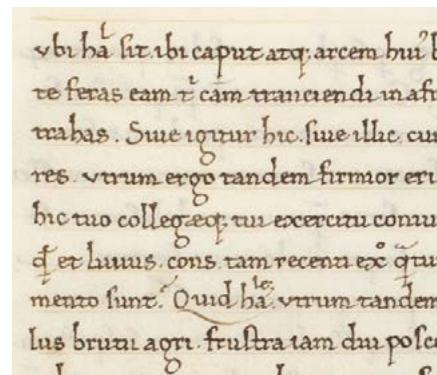 vbi hał sit. ibi caput atq; arcem hui' b
te feras eam t̄ cam tranciendi in afr
trahas. Siue igitur hic. siue illic. cur
res. vtrum ergo tandem firmior eri
hic tuo collegæq; tui exercitu coniu
et liuius. cons. tam recenti
mento sunt. Quid hałe. vtrum tandem
lus brutii agri. frustra iam diu posce